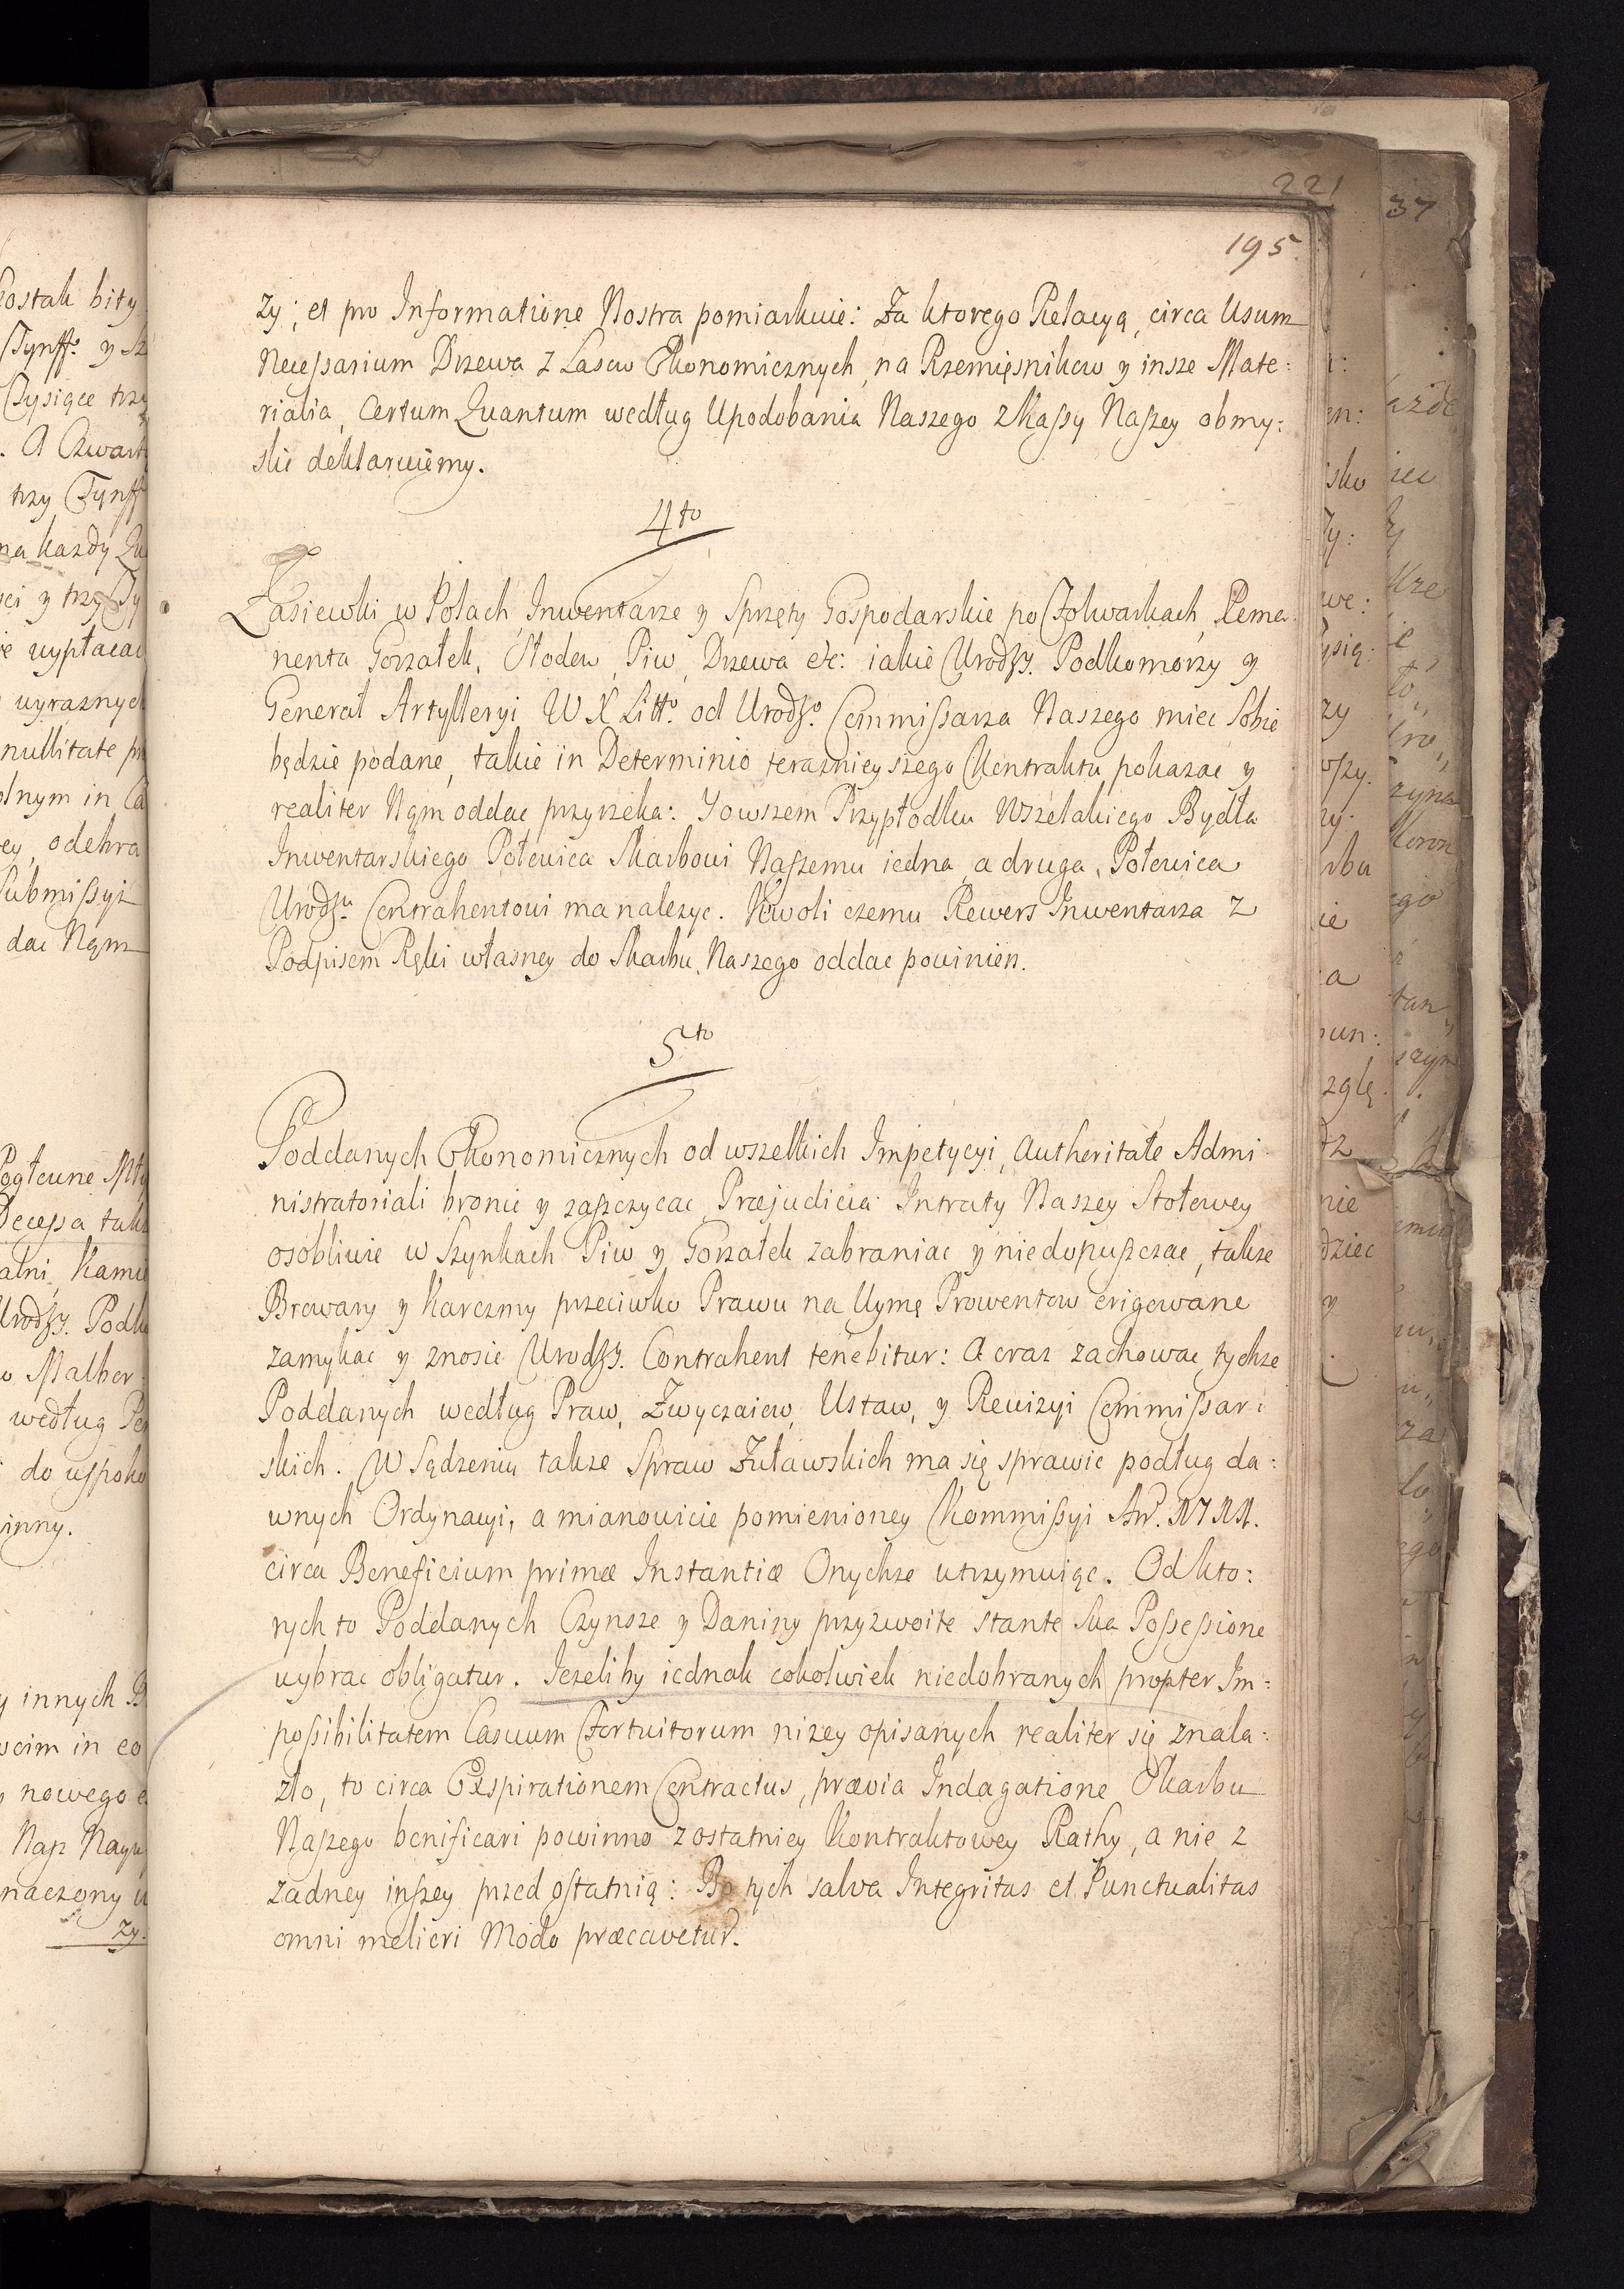 221
37
195.
zy; et pro Informatione Nostra pomiarkuie: Za ktorego Relacyą, circa Usum
Necessarium Drzewa z Lasow Ekonomicznych, na Rzemięsnikow y insze Mate:
rialia, Certum Quantum według Upodobania Naszego z Kassy Naszey obmy:
slić deklaruiemy.
4to
Zasiewki w Polach, Inwentarze y Sprzęty Gospodarskie po Folwarkach, Rema
nenta Gorzałek, Słodow, Piw, Drzewa etc: iakie Urodzy. Podkomorzy y
Generał Artylleryi W X Litto. od Urodzo. Commissarza Naszego miec sobie
będzie podane, takie in Determinio teraznieyszego Kontraktu pokazac y
realiter Nąm oddac przyrzeka: Y owszem Przypłodku Wszelakiego Bydła
Inwentarskiego Połowica Skarbowi Naszemu iedna, a druga Połowica
Urodzu. Contrahentowi ma nalezyc. Kwoli czemu Rewers Inwentarza z
Podpisem Ręki własney do Skarbu Naszego oddac powinien.
5to
Poddanych Ekonomicznych od wszelkich Impetycyi, Authoritate Admi
nistratoriali bronic y zaszczycac, Præjudicia Intraty Naszey Stołowey
osobliwie w Szynkach Piw y Gorzałek zabraniac y niedopuszczac, takze
Browary y Karczmy przeciwko Prawu na Uymę Prowentow erigowane
zamykac y znosic Urodzy. Contrahent tenebitur: A oraz zachowac tychze
Poddanych według Praw, Zwyczaiow, Ustaw, y Rewizyi Commissar:
skich. W Sądzeniu takze Spraw Zuławskich ma się sprawic podług da:
wnych Ordynacyi, a mianowicie pomienioney Kommissyi
circa Beneficium primæ Instantiæ Onychze utrzymuiąc. Od kto:
rych to Poddanych Czynsze y Daniny przyzwoite stante sua Possessione
wybrac obligatur. Jezeliby iednak cokolwiek niedobranych propter Im:
possibilitatem Casuum Fortuitorum nizey opisanych realiter się znala:
zło, to circa Exspirationem Contractus, prævia Indagatione Skarbu
Naszego bonificari powinno z ostatniey Kontraktowey Rathy, a nie z
zadney inszey przed ostatnią: Bo tych salva Integritas et Punctualitas
omni meliori Modo præcavetur.